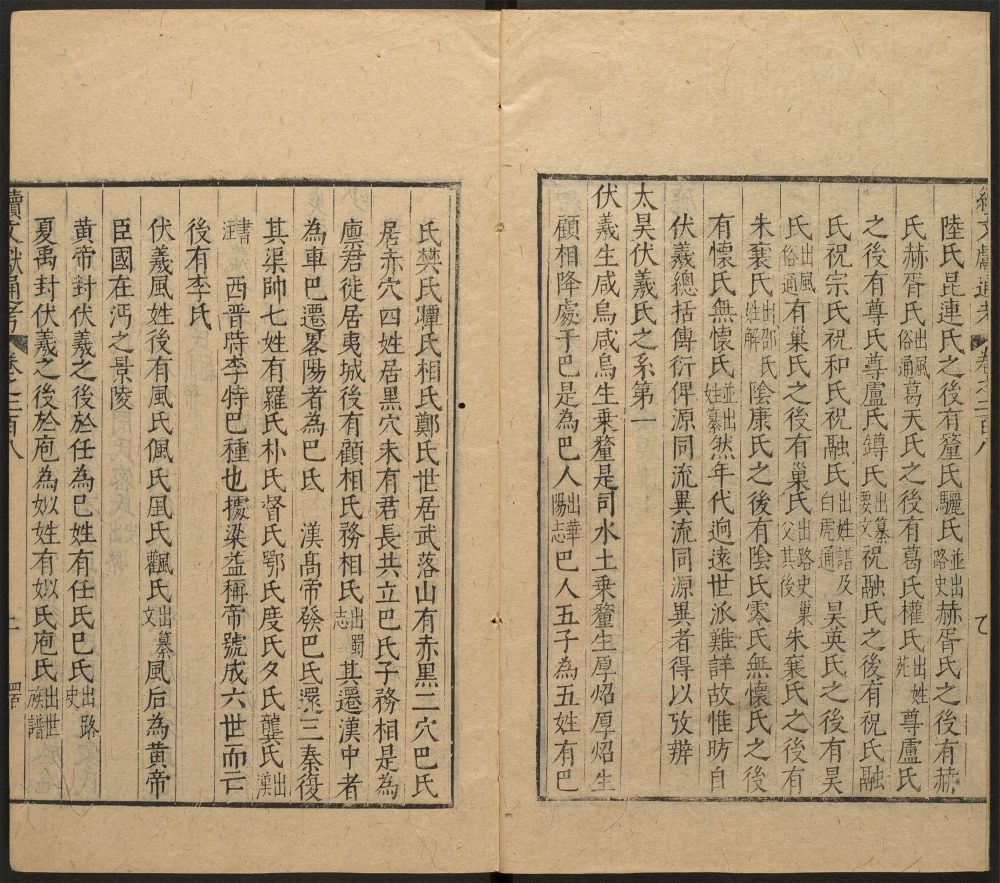 續文獻通考 卷之二百八
陸氏昆連氏之後有釐氏驪氏並出路史赫胥氏之後有赫
氏赫胥氏出風俗通葛天氏之後有葛氏權氏出姓苑尊盧氏
之後有尊氏尊盧氏蹲氏出纂要文祝融氏之後有祝氏融
氏祝宗氏祝和氏祝融氏出姓譜及白虎通昊英氏之後有昊
氏出風俗通有巢氏之後有巢氏出路史巢父其後朱襄氏之後有
朱襄氏出邵氏姓解陰康氏之後有陰氏雰氏無懷氏之後
有懷氏無懷氏並出姓纂然年代逈遠世派難詳故惟昉自
伏羲總括傳衍俾源同流異流同源異者得以攷辨
太昊伏羲氏之系第一
伏羲生咸鳥咸鳥生乗釐是司水土乗釐生厚炤厚炤生
顧相降處于巴是為巴人出華陽志巴人五子為五姓有巴
氏樊氏瞫氏相氏鄭氏世居武落山有赤黑二穴巴氏
居赤穴四姓居黑穴未有君長共立巴氏子務相是為
廪君徙居夷城後有顧相氏務相氏出蜀志其遷漢中者
為車巴遷畧陽者為巴氐 漢髙帝發巴氐還三秦復
其渠帥七姓有羅氏朴氏督氏鄂氏度氏夕氏龔氏出漢書注
西晋時李特巴種也據梁益稱帝號成六世而亡
後有李氏
伏羲風姓後有風氏佩氏凬氏飌氏出纂文風后為黄帝
臣國在沔之景陵
黄帝封伏羲之後於任為巳姓有任氏巳氏出路史
夏禹封伏羲之後於庖為姒姓有姒氏庖氏出世族譜
續文獻通考 卷之二百八 二